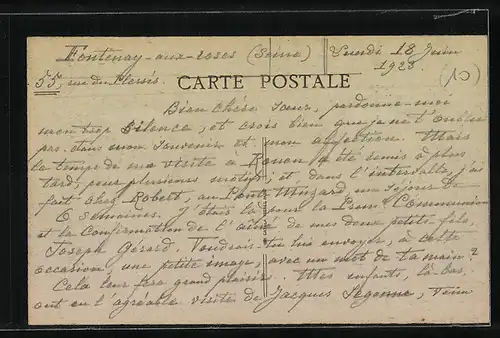 Fontenay-aux-roses (Seine) Lundi 18 Juin
55, rue du Plessis. CARTE POSTALE 1928. (10)
Bien chère Soeur, pardonne-moi
mon trop silence, et crois bien que je ne t'oublie
pas dans mon souvenir et mon affection. Mais
le temps de ma visite a Rouen a été remis à plus
tard, pour plusieurs motifs; et, dans l'intervalle, j'ai
fait chez Robert, au Petit un séjour de
6 semaines. J'étais là pour la Prem. Communion
et la Confirmation de l'ainé de mes deux petits fils,
Joseph Gérard. Voudrais-tu lui envoyer, à cette
occasion, une petite image, avec un mot de ta main?
Cela leur fera grand plaisir. Mes enfants, là-bas,
ont eu l'agréable visite de Jacques Segonne, venu